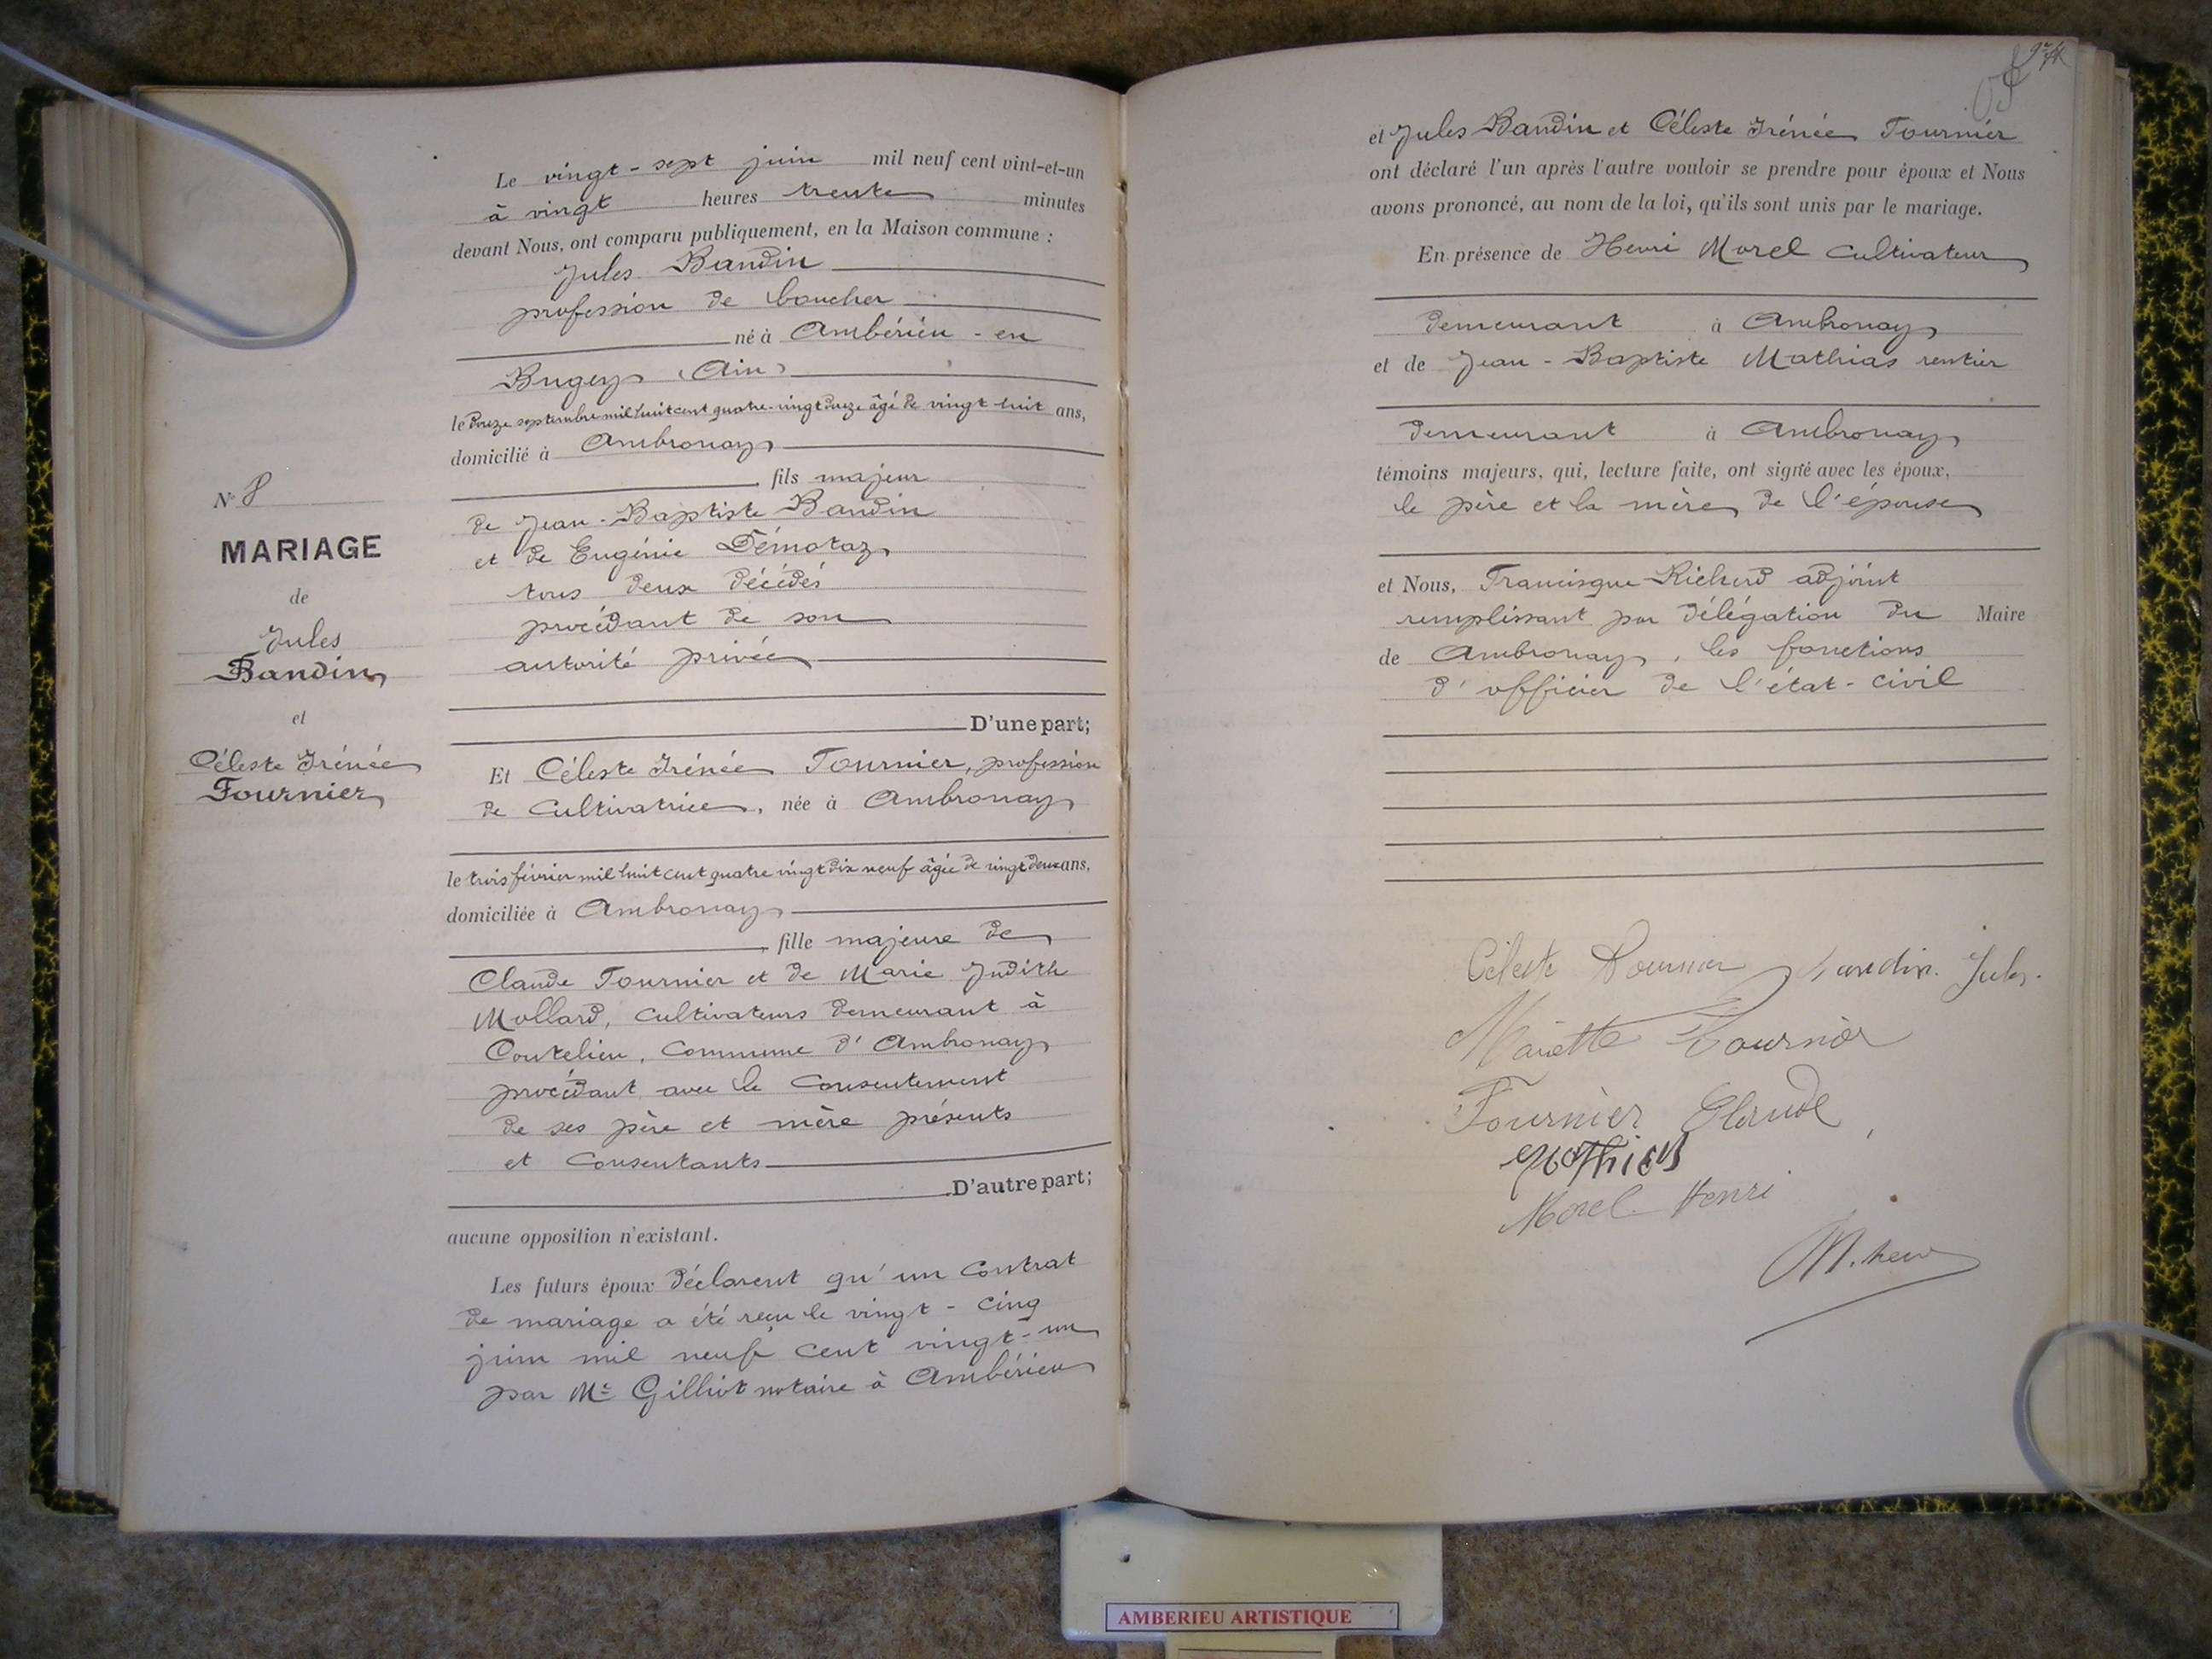 Le vingt-sept juin mil neuf cent vint-et-un
à vingt heures trente minutes
devant Nous, ont comparu publiquement, en la Maison commune :
Jules Bandin
profession de boucher
né à Ambérieu - en
Bugey (Ain)
le douze septembre mil huit cent quatre-vingt douze âgé de vingt huit ans,
domicilié à Ambronay
fils majeur
de Jean-Baptiste Bandin
et de Eugénie Démotaz
tous deux décédés
procédant de son
autorité privée
D'une part;
Et Céleste Irénée Fournier, profession
de cultivatrice, née à Ambronay
le trois février mil huit cent quatre vingt dix neuf âgée de vingt deux ans,
domiciliée à Ambronay
fille majeure de
Claude Fournier et de Marie Judith
Mollard, cultivateurs demeurant à
Coutelieu, Commune d'Ambronay
procédant avec le consentement
de ses père et mère présents
et consentants
D'autre part;
aucune opposition n'existant.
Les futurs époux déclarent qu'un contrat
de mariage a été reçu le vingt-cinq
juin mil neuf cent vingt-un
par Me Gilliot notaire à Ambérieu
N° 8
MARIAGE
de
Jules
Bandin
et
Céleste Irénée
Fournier
et Jules Bandin et Céleste Irénée Fournier
ont déclaré l'un après l'autre vouloir se prendre pour époux et Nous
avons prononcé, au nom de la loi, qu'ils sont unis par le mariage.
En présence de Henri Morel cultivateur
demeurant à Ambronay
et de Jean-Baptiste Mathias rentier
demeurant à Ambronay
témoins majeurs, qui, lecture faite, ont signé avec les époux,
le père et la mère de l'épouse
et Nous, Francisque Richerd adjoint
remplissant par délégation du Maire
de Ambronay, les fonctions
d'officier de l'état-civil
Céleste Fournier Bandin. Jules.
Mariette Fournier
Fournier Claude
Morel Henri
AMBERIEU ARTISTIQUE